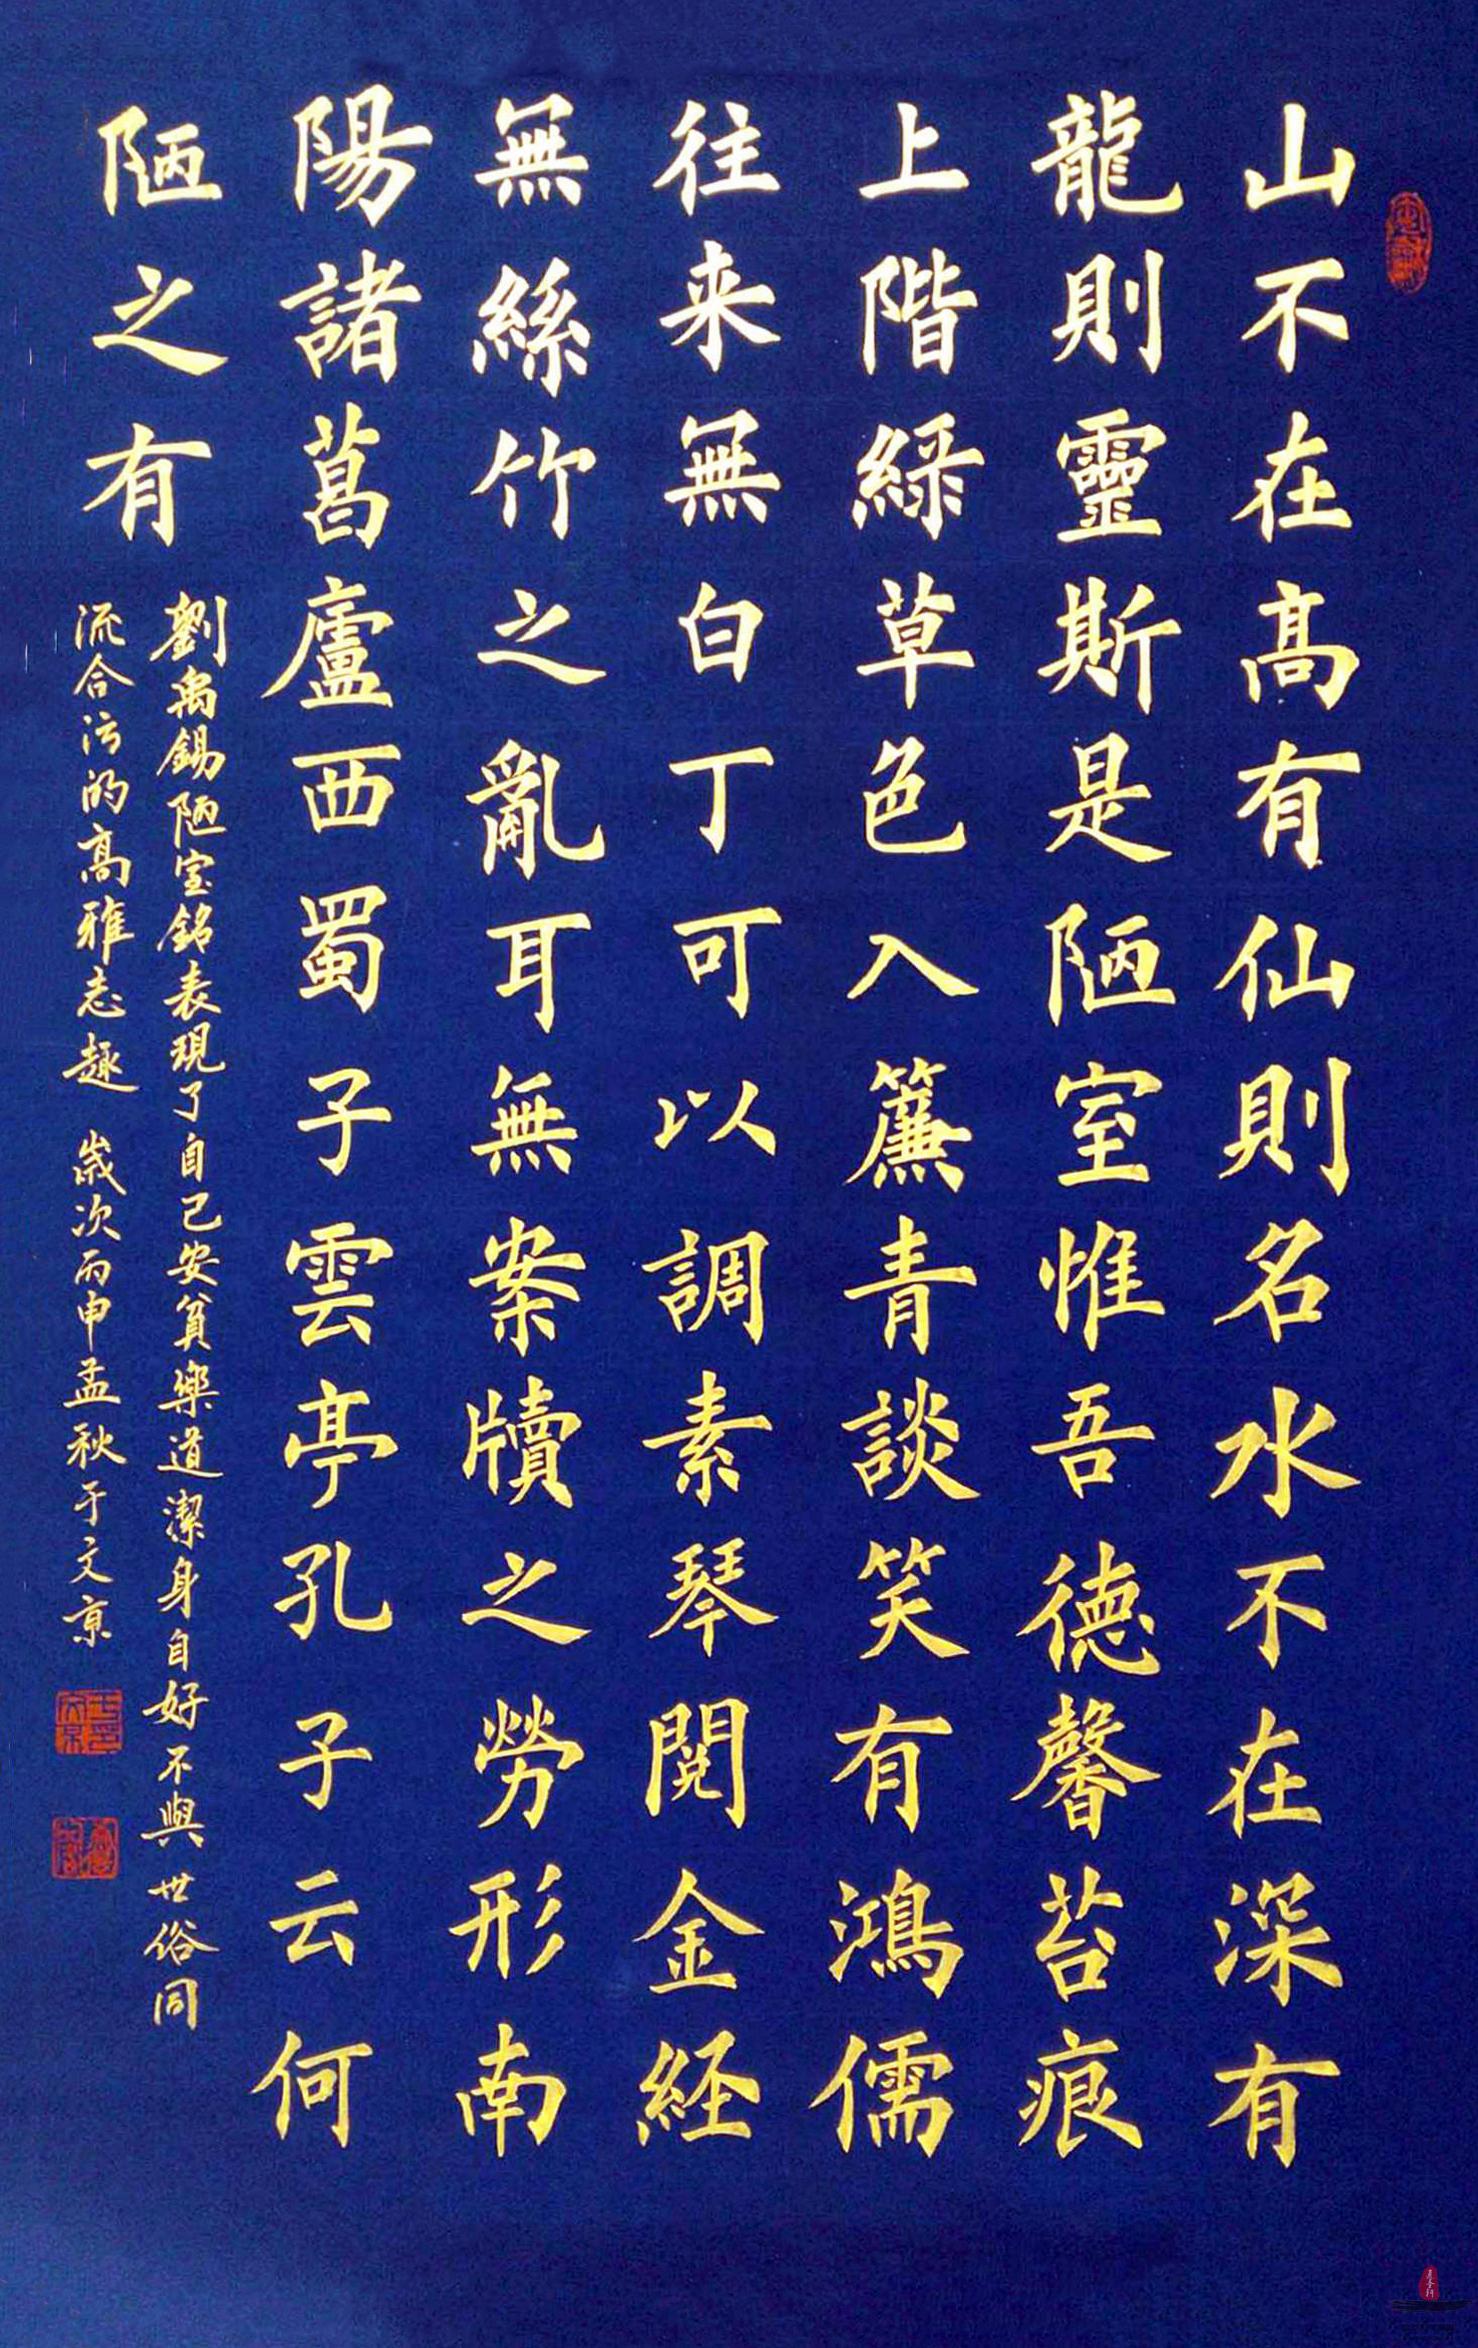 山不在高有仙則名水不在深有
龍則靈斯是陋室惟吾德馨苔痕
上階緑草色入簾青談笑有鴻儒
往来無白丁可以調素琴閱金経
無絲竹之亂耳無案牘之勞形南
陽諸葛廬西蜀子雲亭孔子云何
陋之有
劉禹錫陋室銘表現了自己安貧樂道潔身自好不與世俗同
流合污的高雅志趣 歲次丙申孟秋于文京